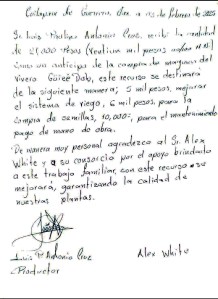 Coatlapan de Guerrero, Oax a 13 de Febrero de 2025
Yo Luis Martin Antonio Cruz, recibí la cantidad
de 21,000 Pesos (Veintiun mil pesos moneda N.N.)
como un anticipo de la compra de maguey del
vivero Güieë Dob, este recurso se destinará
de la siguiente manera; 5 mil pesos, mejorar
el sistema de riego, 6 mil pesos, para la
compra de semillas, 10,000=, para el mantenimiento
pago de mano de obra.
De manera muy personal agradezco al Sr. Alex
White y a su consorcio por el apoyo brindado
a este trabajo familiar, con este recurso se
mejorará, garantizando la calidad de
nuestras plantas.
Luis M Antonio Cruz
Alex White
Productor